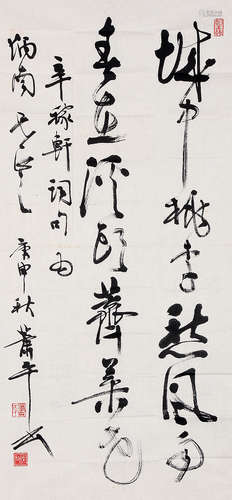 城中桃李愁风雨
春在溪头荠菜花
辛稼轩词句为
炳南兄正之
庚申秋萧平